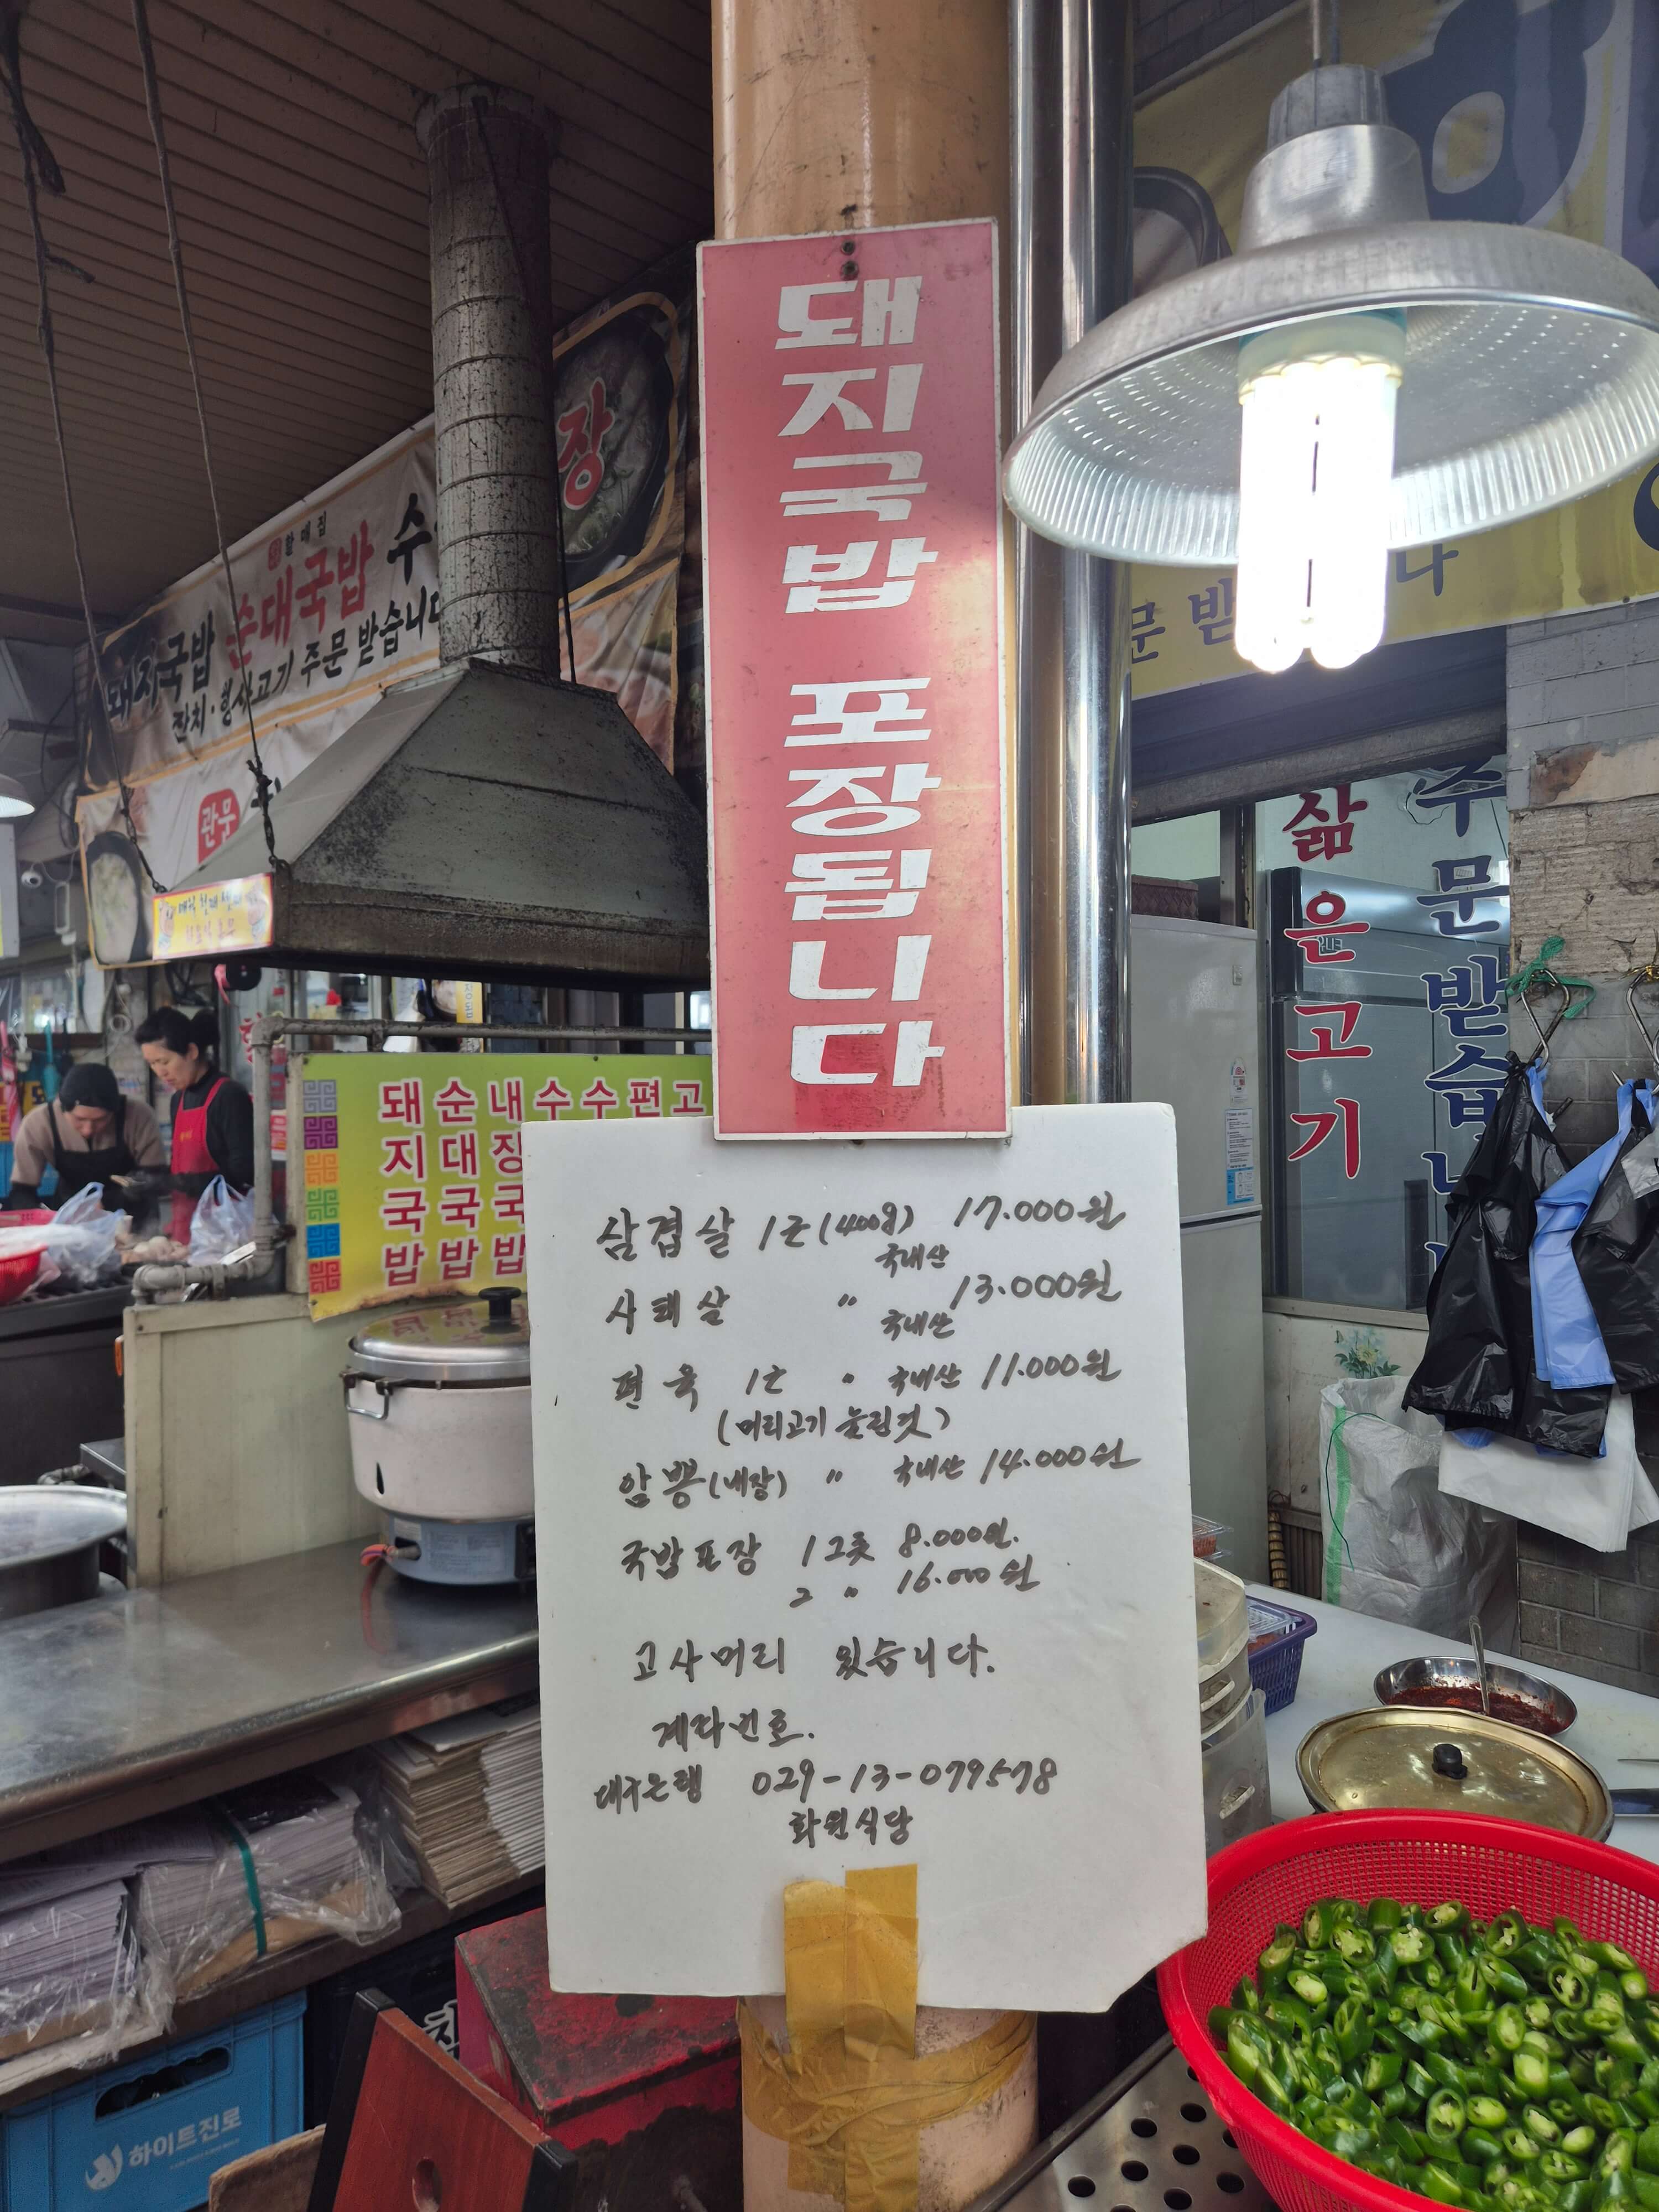 장
할매집
돼지국밥 순대국밥 수
잔치·행사고기 주문 받습니다
관무
돼지국밥 포장됩니다
문 받
나
삶은고기
주문받습니
돼지국밥
순대국밥
내장국밥
수
수
편
고
삼겹살 1근(400g) 17.000원
국내산
사태살 〃 13.000원
국내산
편육 1근 〃 국내산 11.000원
(머리고기 눌린것)
암뽕(내장) 〃 국내산 14.000원
국밥포장 1그릇 8.000원.
2 〃 16.000원
고사머리 있습니다.
계좌번호.
대구은행 029-13-079578
화원식당
하이트진로